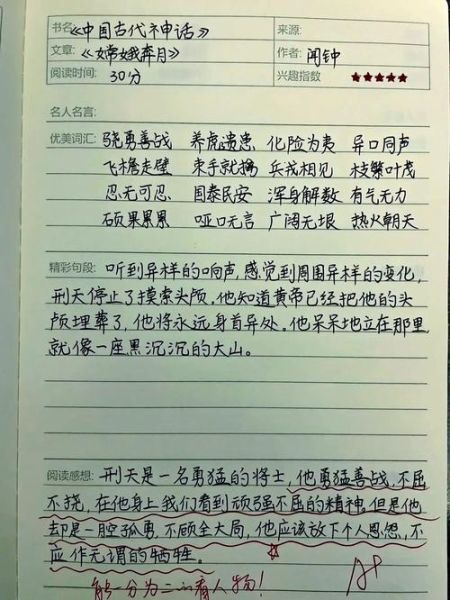 书名:《中国古代神话》 来源:
文章:《嫦娥奔月》 作者: 闻钟
阅读时间: 30分 兴趣指数 ★★★★★
名人名言:
优美词汇: 骁勇善战 养虎遗患 化险为夷 异口同声
飞檐走壁 束手就擒 兵戎相见 枝繁叶茂
忍无可忍 国泰民安 浑身解数 有气无力
硕果累累 哑口无言 广阔无垠 热火朝天
精彩句段: 听到异样的响声,感觉到周围异样的变化,
刑天停止了摸索头颅。他知道黄帝已经把他的头
颅埋葬了,他将永远身首异处。他呆呆地立在那里
就像一座黑沉沉的大山。
阅读感想: 刑天是一名勇猛的将士,他勇猛善战,不屈
不挠,在他身上我们看到顽强不屈的精神,但是他
却是一腔孤勇,不顾全大局,他应该放下个人恩怨,不
应作无谓的牺牲。
能一分为二的看人物!
A+